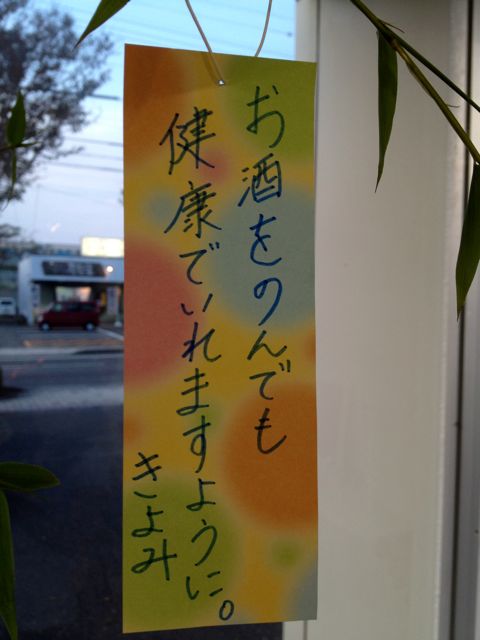 お酒をのんでも
健康でいれますように。
きよみ